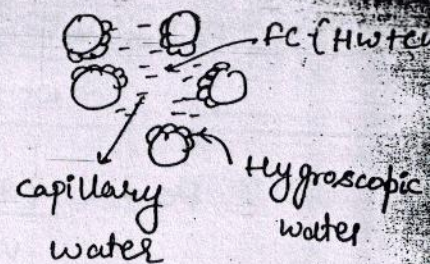 FC {HW+CW
capillary
water
Hygroscopic
water